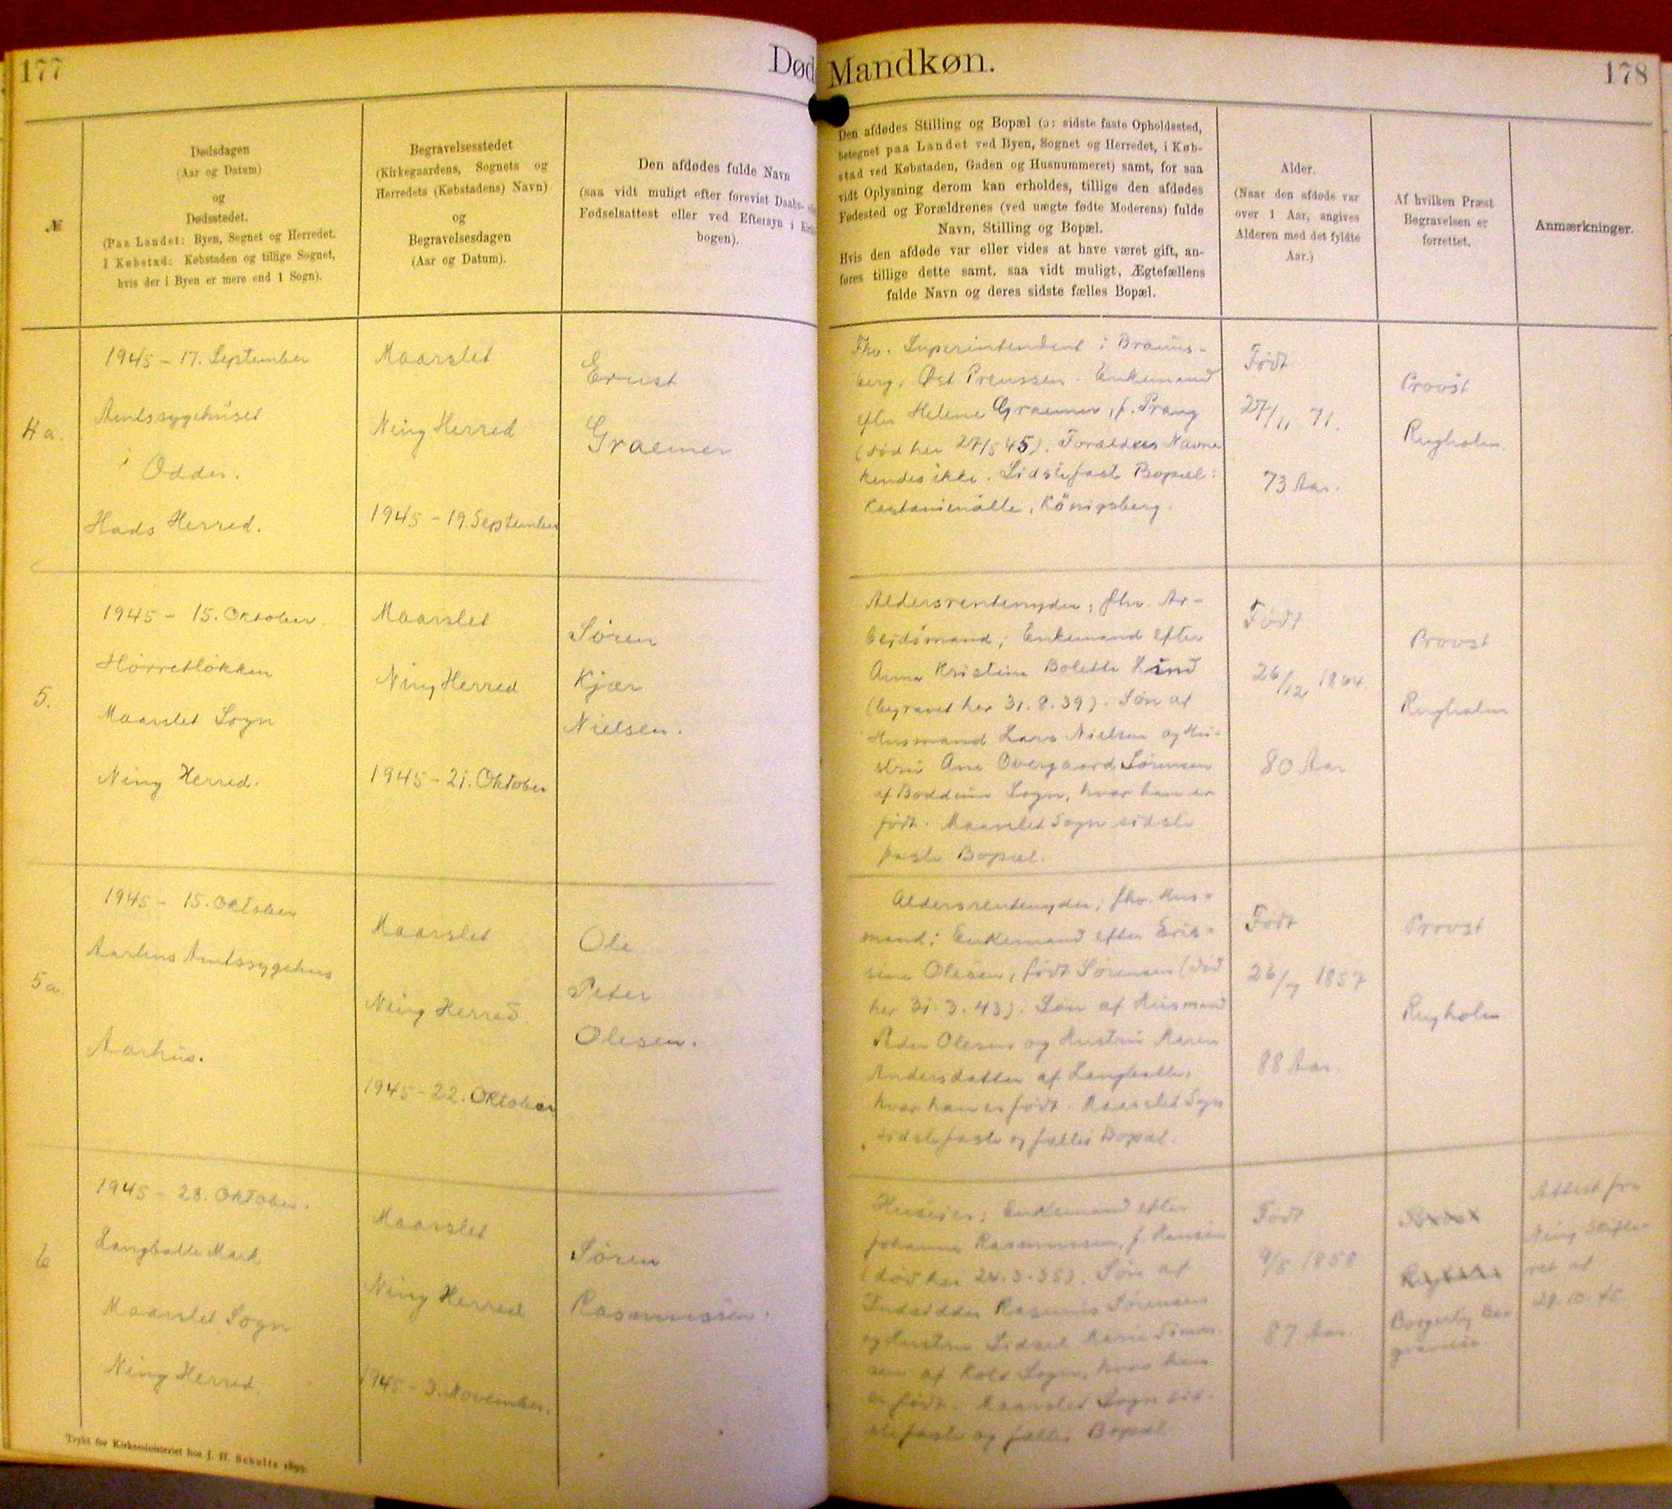 177
Død
Mandkøn.
178
№
Dødsdagen
(Aar og Datum)
og
Dødsstedet.
(Paa Landet: Byen, Sognet og Herredet.
I Købstad: Købstaden og tillige Sognet,
hvis der i Byen er mere end 1 Sogn).
Begravelsesstedet
(Kirkegaardens, Sognets og
Herredets (Købstadens) Navn)
og
Begravelsesdagen
(Aar og Datum).
Den afdødes fulde Navn
(saa vidt muligt efter forevist Daabs-
Fødselsattest eller ved Eftersyn i
bogen).
Den afdødes Stilling og Bopæl (ɔ: sidste faste Opholdssted,
betegnet paa Landet ved Byen, Sognet og Herredet, i Køb-
stad ved Købstaden, Gaden og Husnummeret) samt, for saa
vidt Oplysning derom kan erholdes, tillige den afdødes
Fødested og Forældrenes (ved uægte fødte Moderens) fulde
Navn, Stilling og Bopæl.
Hvis den afdøde var eller vides at have været gift, an-
føres tillige dette samt, saa vidt muligt, Ægtefællens
fulde Navn og deres sidste fælles Bopæl.
Alder.
(Naar den afdøde var
over 1 Aar, angives
Alderen med det fyldte
Aar.)
Af hvilken Præst
Begravelsen er
forrettet.
Anmærkninger.
4a.
1945 - 17. September
Amtssygehuset
i Odder.
Hads Herred.
Maarslet
Ning Herred
1945 - 19. September
Ernst
Graemer
Fhv. Superintendent i Brauns-
berg, Øst Preussen. Enkemand
efter Helene Graemer, f. Prang
(død her 27/5 45). Forældres Navne
kendes ikke. Sidste fast Bopæl:
Kastanienalle, Königsberg.
Født
27/11 71.
73 Aar.
Provst
Rugholm.
5.
1945 - 15. Oktober.
Hørretløkken
Maarslet Sogn
Ning Herred.
Maarslet
Ning Herred
1945 - 21. Oktober
Søren
Kjær
Nielsen.
Aldersrentenyder, fhv. Ar-
bejdsmand; Enkemand efter
Anna Kristine Bolette Lind
(begravet her 31.8.39). Søn af
Husmand Lars Nielsen og Hu-
stru Ane Overgaard Sørensen
af Boddum Sogn, hvor han er
født. Maarslet Sogn sidste
faste Bopæl.
Født
26/12 1864.
80 Aar
Provst
Rugholm
5a.
1945 - 15. Oktober
Aarhus Amtssygehus
Aarhus.
Maarslet
Ning Herred.
1945 - 22. Oktober
Ole
Peter
Olesen.
Aldersrentenyder, fhv. Hus-
mand; Enkemand efter Erik-
sine Olesen, født Sørensen (død
her 31.3.43). Søn af Husmand
Peder Olesen og Hustru Maren
Andersdatter af Langballe,
hvor han er født. Maarslet Sogn
sidste faste og fælles Bopæl.
Født
26/7 1857
88 Aar
Provst
Rugholm
6
1945 - 28. Oktober.
Langballe Mark
Maarslet Sogn
Ning Herred.
Maarslet
Ning Herred
1945 - 3. November.
Søren
Rasmussen.
Husejer; Enkemand efter
Johanne Rasmussen, f. Hansen
(død her 24.3.35). Søn af
Indsidder Rasmus Sørensen
og Hustru Sidsel Marie Simon-
sen af Kolt Sogn, hvor han
er født. Maarslet Sogn sid-
ste faste og fælles Bopæl
Født
9/5 1858
87 Aar.
Provst
Rugholm
Borgerlig Be-
gravelse
Attest fra
Ning Skifte-
ret af
29.10.45
Trykt for Kirkeministeriet hos J. H. Schultz